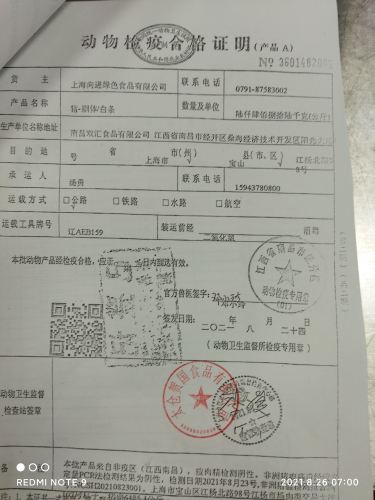 动物检疫合格证明(产品 A)
货 主 上海向进绿色食品有限公司 联系电话 0791-87583002
产品名称 猪-胴体/白条 数量及单位 陆仟肆佰捌拾陆千克(公斤)
生产单位名称地址 南昌双汇食品有限公司 江西省南昌市经开区桑海经济技术开发区阳光大道
目的地 省 上海市 市(州) 宝山 县(市、区) 江杨北路98号
承运人 联系电话 15943780800
运载方式 ☑公路 ☐铁路 ☐水路 ☐航空
运载工具牌号 辽AEB159 装运前经 二氧化氯 消毒
本批动物产品经检疫合格,应于 当日到达有效。
官方兽医签字:
签发日期: 二〇二一 年 八 月 二十四 日
(动物卫生监督所检疫专用章)
动物检疫专用章
(01)
动物卫生监督
检查站签章
太仓 国食品有限公司
备 本批产品来自非疫区(江西南昌),瘦肉精检测阴性,非洲猪瘟病毒经荧
光定量PCR法检测结果为阴性,检测日期2021年8月23号,非洲
20210823001, 上海市宝山区江杨北路98号江杨
REDMI NOTE 9
2021.8.26 07:00